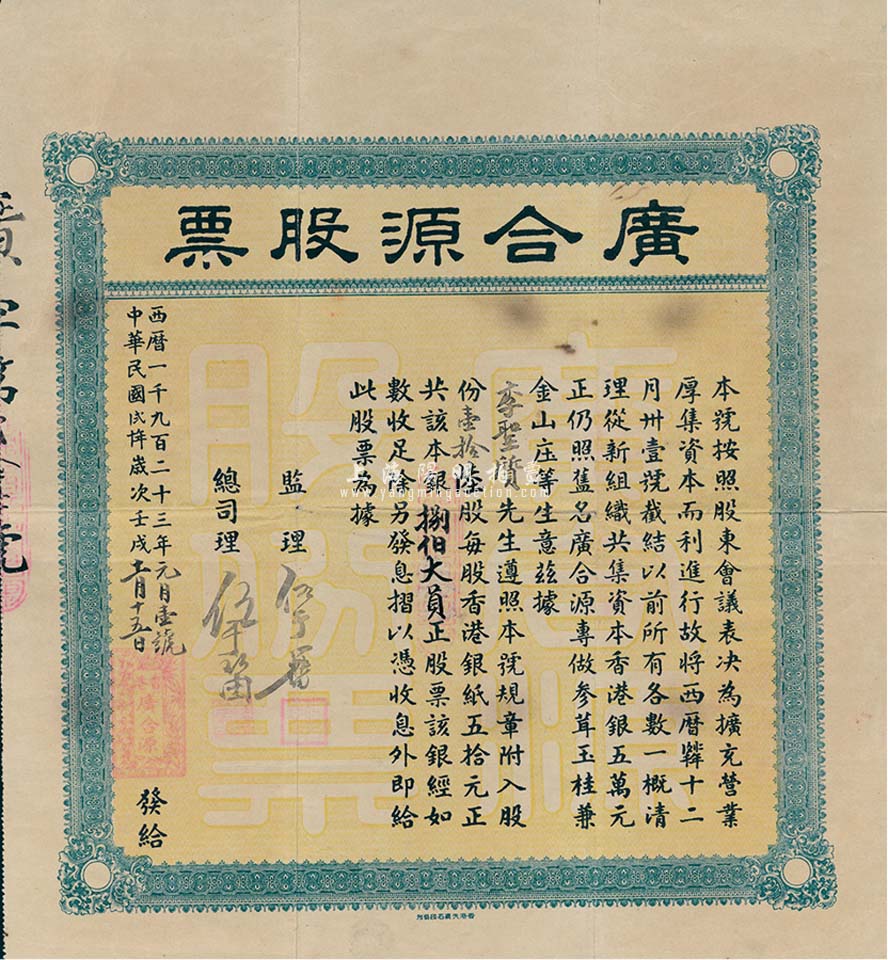 廣合源股票
本號按照股東會議表決為擴充營業
厚集資本而利進行故將西曆
十二
月卅壹號截結以前所有各數一概清
理從新組織共集資本香港銀五萬元
正仍照舊名廣合源專做參茸玉桂兼
金山庄等生意茲據
李聖
先生遵照本號規章附入股
份壹拾陸股每股香港銀紙五拾元正
共該本銀捌佰大員正股票該銀經如
數收足除另發息摺以憑收息外即給
此股票為據
監理
總司理
西曆一千九百二十三年元月壹號
中華民國
歲次壬戌十一月十五日
發給
廣合源
上海陽明拍賣
www.yangmingauction.com